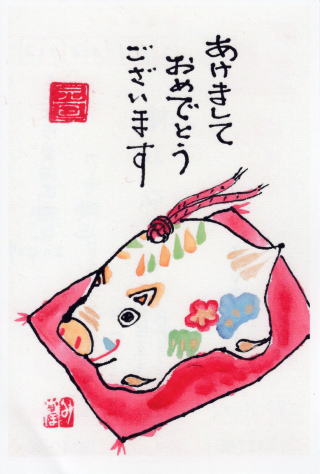 あけまして
おめでとう
ございます
元旦